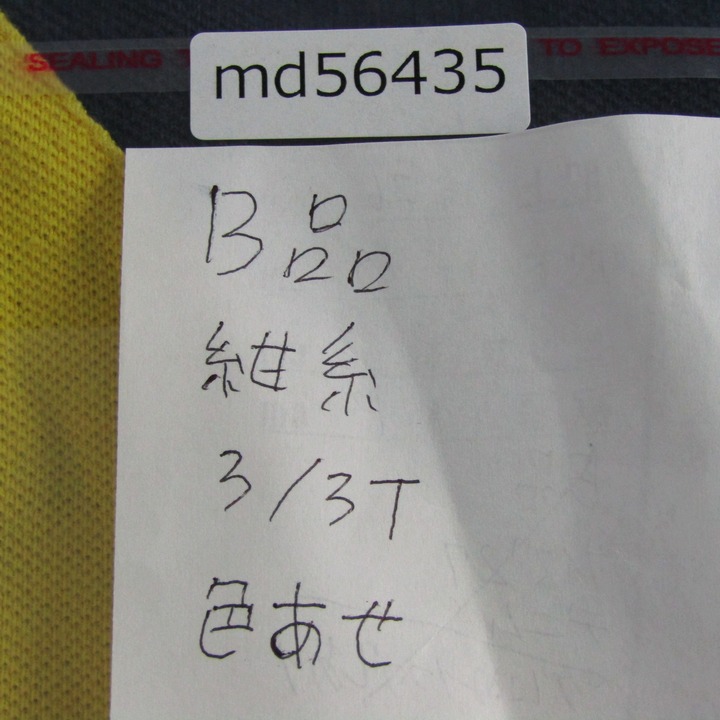 SEALING T
TO EXPOSE
md56435
B品
紺系
3/3T
色あせ